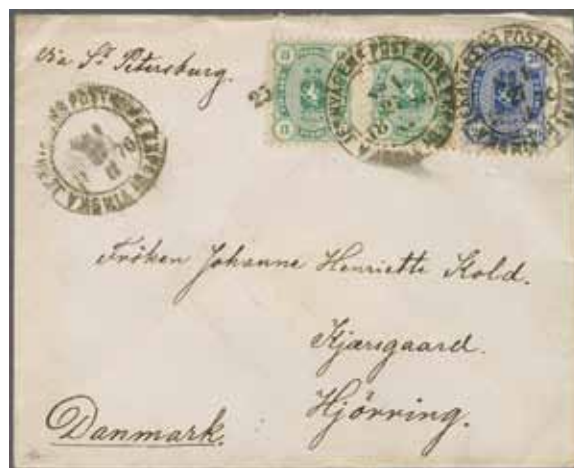 via St Petersburg.
Fröken Johanne Henriette Kold.
Kjærsgaard.
Hjörring.
Danmark.